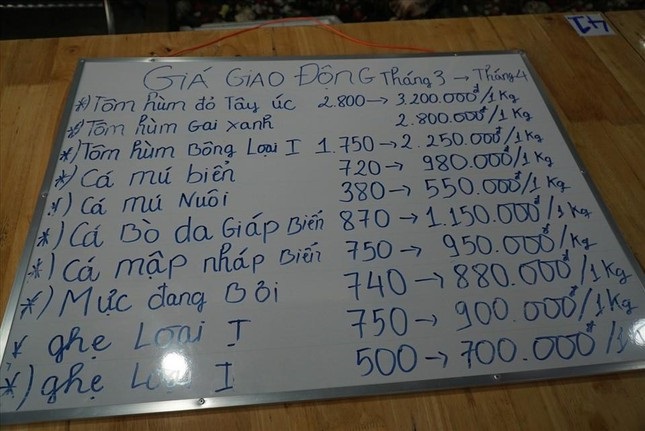 GIÁ GIAO ĐỘNG Tháng 3 → Tháng 4
*) Tôm hùm đỏ Tây úc 2.800 → 3.200.000đ/1 Kg
*) Tôm hùm Gai xanh 2.800.000đ/1 Kg
*) Tôm hùm Bông Loại I 1.750 → 2.250.000đ/1 Kg
*) Cá mú biển 720 → 980.000đ/1 Kg
*) Cá mú Nuôi 380 → 550.000đ/1 Kg
*) Cá Bò da Giáp Biển 870 → 1.150.000đ/1 Kg
*) Cá mập nháp Biển 750 → 950.000đ/1 Kg
*) Mực đang Bởi 740 → 880.000đ/1 Kg
* ghẹ Loại I 750 → 900.000đ/1 Kg
*) ghẹ Loại I 500 → 700.000đ/1